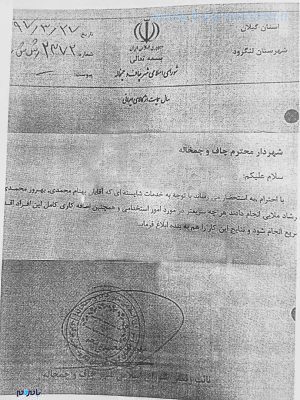 استان گیلان
شهرستان لنگرود
جمهوری اسلامی ایران
بسمه تعالی
شورای اسلامی شهر چاف و چمخاله
سال حمایت از کالای ایرانی
تاریخ ۹۷/۳/۲۷
شماره ۲۴۷۲
پیوست
شهردار محترم چاف و چمخاله
سلام علیکم:
با احترام به استحضار می رساند با توجه به خدمات شایسته ای که آقایان بهنام محمدی، بهروز محمدی
رشاد ملایی انجام دادند هر چه سریعتر در مورد امور استخدامی و همچنین اضافه کاری کامل این افراد
سریع انجام شود و نتایج این کار را هم به بنده ابلاغ فرمائید
چاف و چمخاله